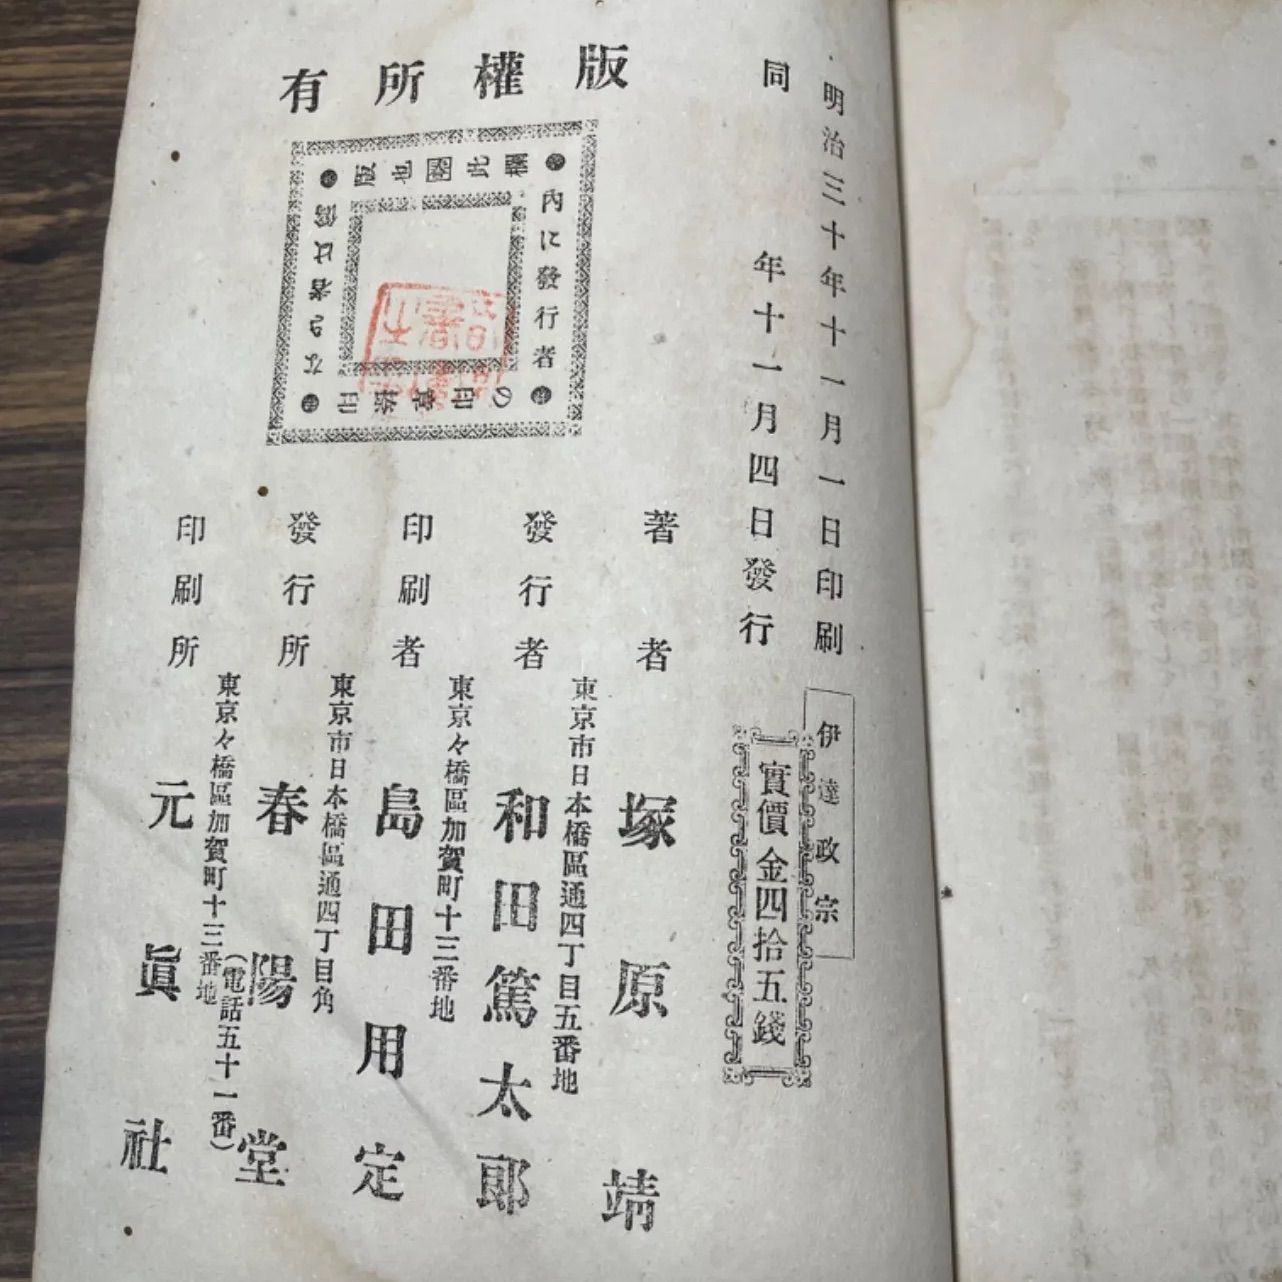 明治三十年十一月一日印刷
同年十一月四日發行
伊達政宗
實價金四拾五錢
版權所有
欄此圖地版
内に發行者
の印章捺印
なき者は僞
著者 塚原靖
東京市日本橋區通四丁目五番地
發行者 和田篤太郎
東京々橋區加賀町十三番地
印刷者 島田用定
東京市日本橋區通四丁目角
發行所 春陽堂
(電話五十一番)
東京々橋區加賀町十三番地
印刷所 元眞社